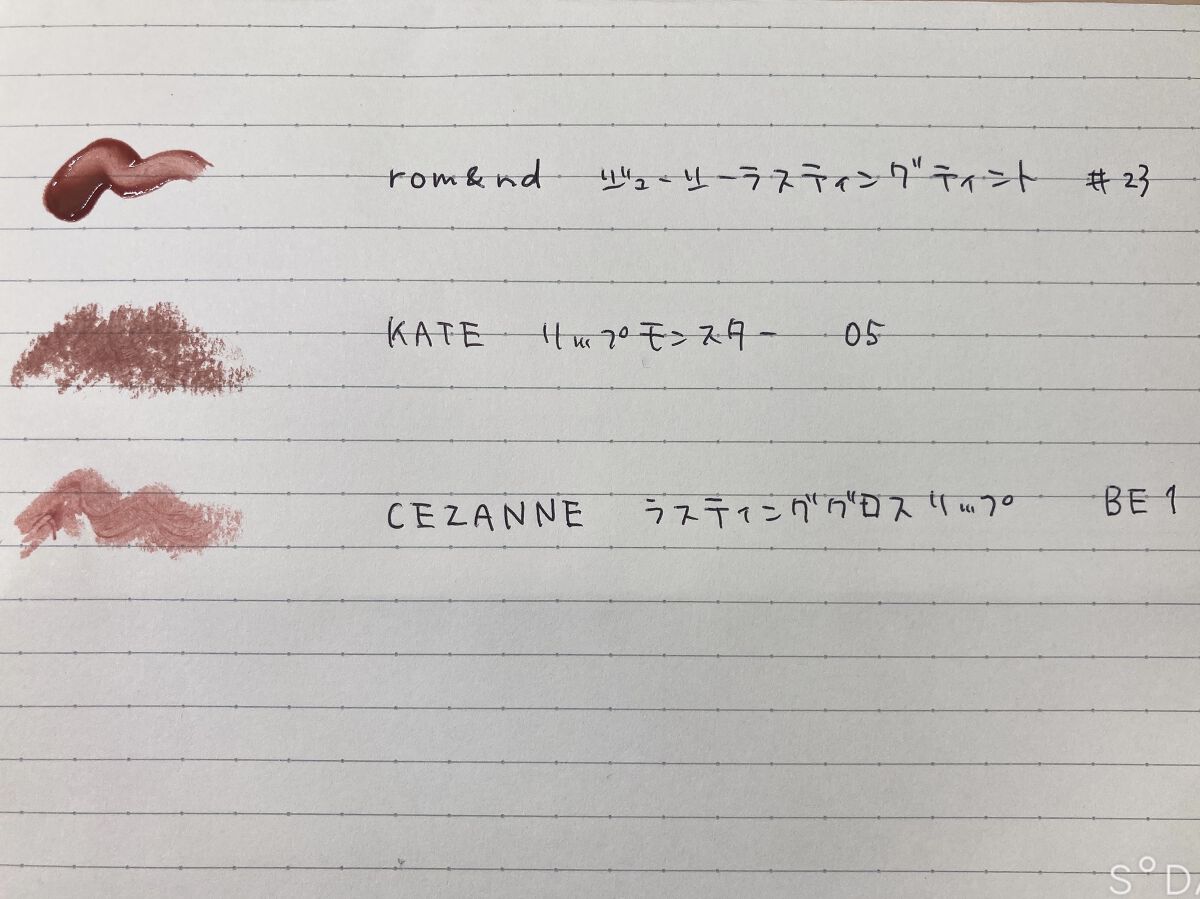 rom&nd ジューシーラスティングティント #23
KATE リップモンスター 05
CEZANNE ラスティンググロスリップ BE1